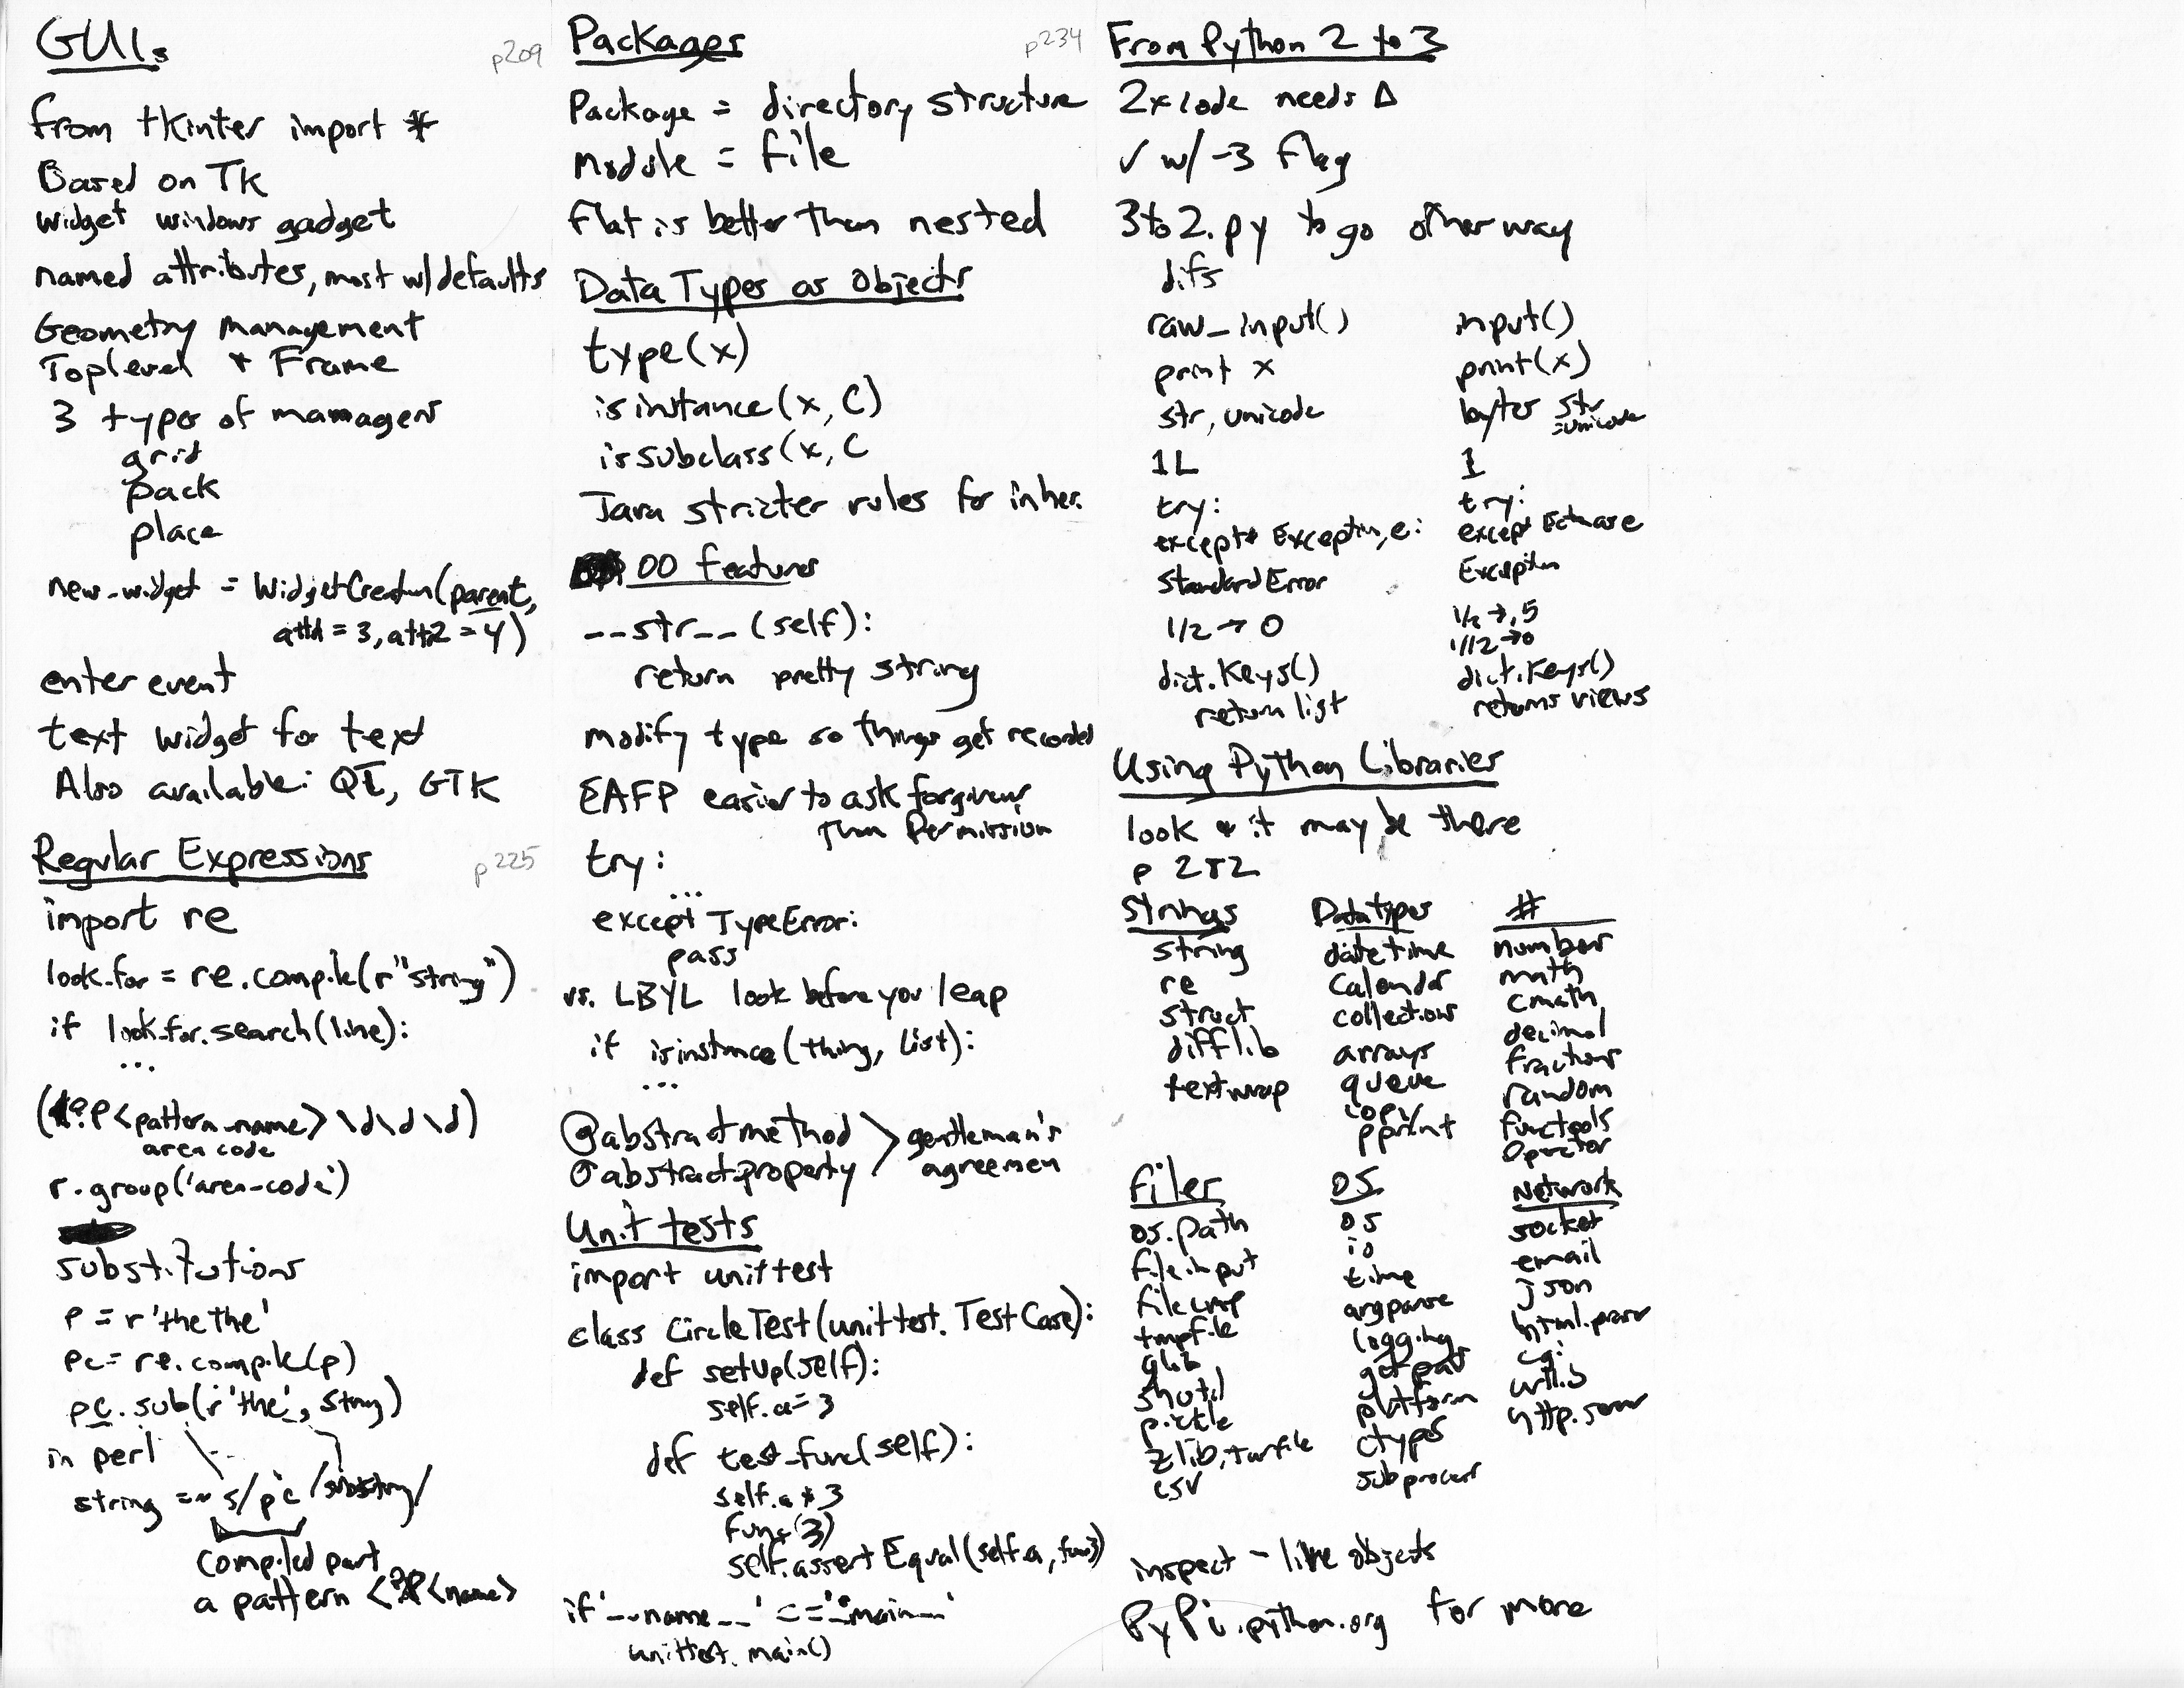 GUIs
p209
from tkinter import *
Based on TK
widget windows gadget
named attributes, most w/ defaults
Geometry management
Toplevel + Frame
3 types of managers
grid
pack
place
new_widget = WidgetCreation(parent,
attr1 = 3, attr2 = 4)
enter event
text widget for text
Also available: QT, GTK
Regular Expressions
p225
import re
look_for = re.compile(r"string")
if look_for.search(line):
...
(?P<pattern_name>\d\d\d)
area code
r.group('area-code')
substitutions
p = r'the the'
pc = re.compile(p)
pc.sub(r'the', string)
in perl
string =~ s/pc/substring/
compiled part
a pattern <?P<name>
Packages
p234
Package = directory structure
module = file
flat is better than nested
Data Types as Objects
type(x)
isinstance(x, C)
issubclass(x, C
Java stricter rules for inher.
OO features
__str__(self):
return pretty string
modify type so things get recorded
EAFP easier to ask forgiveness
than Permission
try:
...
except TypeError:
pass
vs. LBYL look before you leap
if isinstance(thing, list):
...
@abstractmethod
@abstractproperty
gentleman's
agreemen
Unit tests
import unittest
class CircleTest(unittest.TestCase):
def setUp(self):
self.a = 3
def test_func(self):
self.a * 3
func(3)
self.assertEqual(self.a, func3)
if '__name__' == '__main__'
unittest.main()
From Python 2 to 3
2x code needs Δ
✓ w/ -3 flag
3to2.py to go other way
difs
raw_input() input()
print x print(x)
str, unicode bytes str
=unicode
1L 1
try: try:
except Exception, e: except E as e
StandardError Exception
1/2 → 0 1/2 → .5
1//2 → 0
dict.keys() dict.keys()
return list returns views
Using Python Libraries
look & it may be there
p 252
Strings Datatypes #
string datetime number
re calendar math
struct collections cmath
difflib arrays decimal
textwrap queue fractions
copy random
pprint functools
operator
Files OS Network
os.path os socket
fileinput io email
filecmp time json
tmpfile argparse html.parser
glob logging cgi
shutil getpass urllib
pickle platform http.server
zlib, tarfile ctypes
csv subprocess
inspect - live objects
PyPi.python.org for more